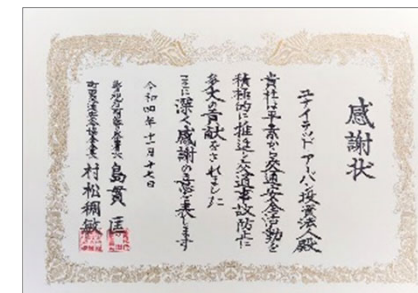 感謝状
ユナイテッド・アーバン投資法人殿
貴社は平素から交通安全活動を
積極的に推進し交通事故防止に
多大の貢献をされました
ここに深く感謝の意を表します
令和四年十一月十七日
島貫 匡
村松 稠敏